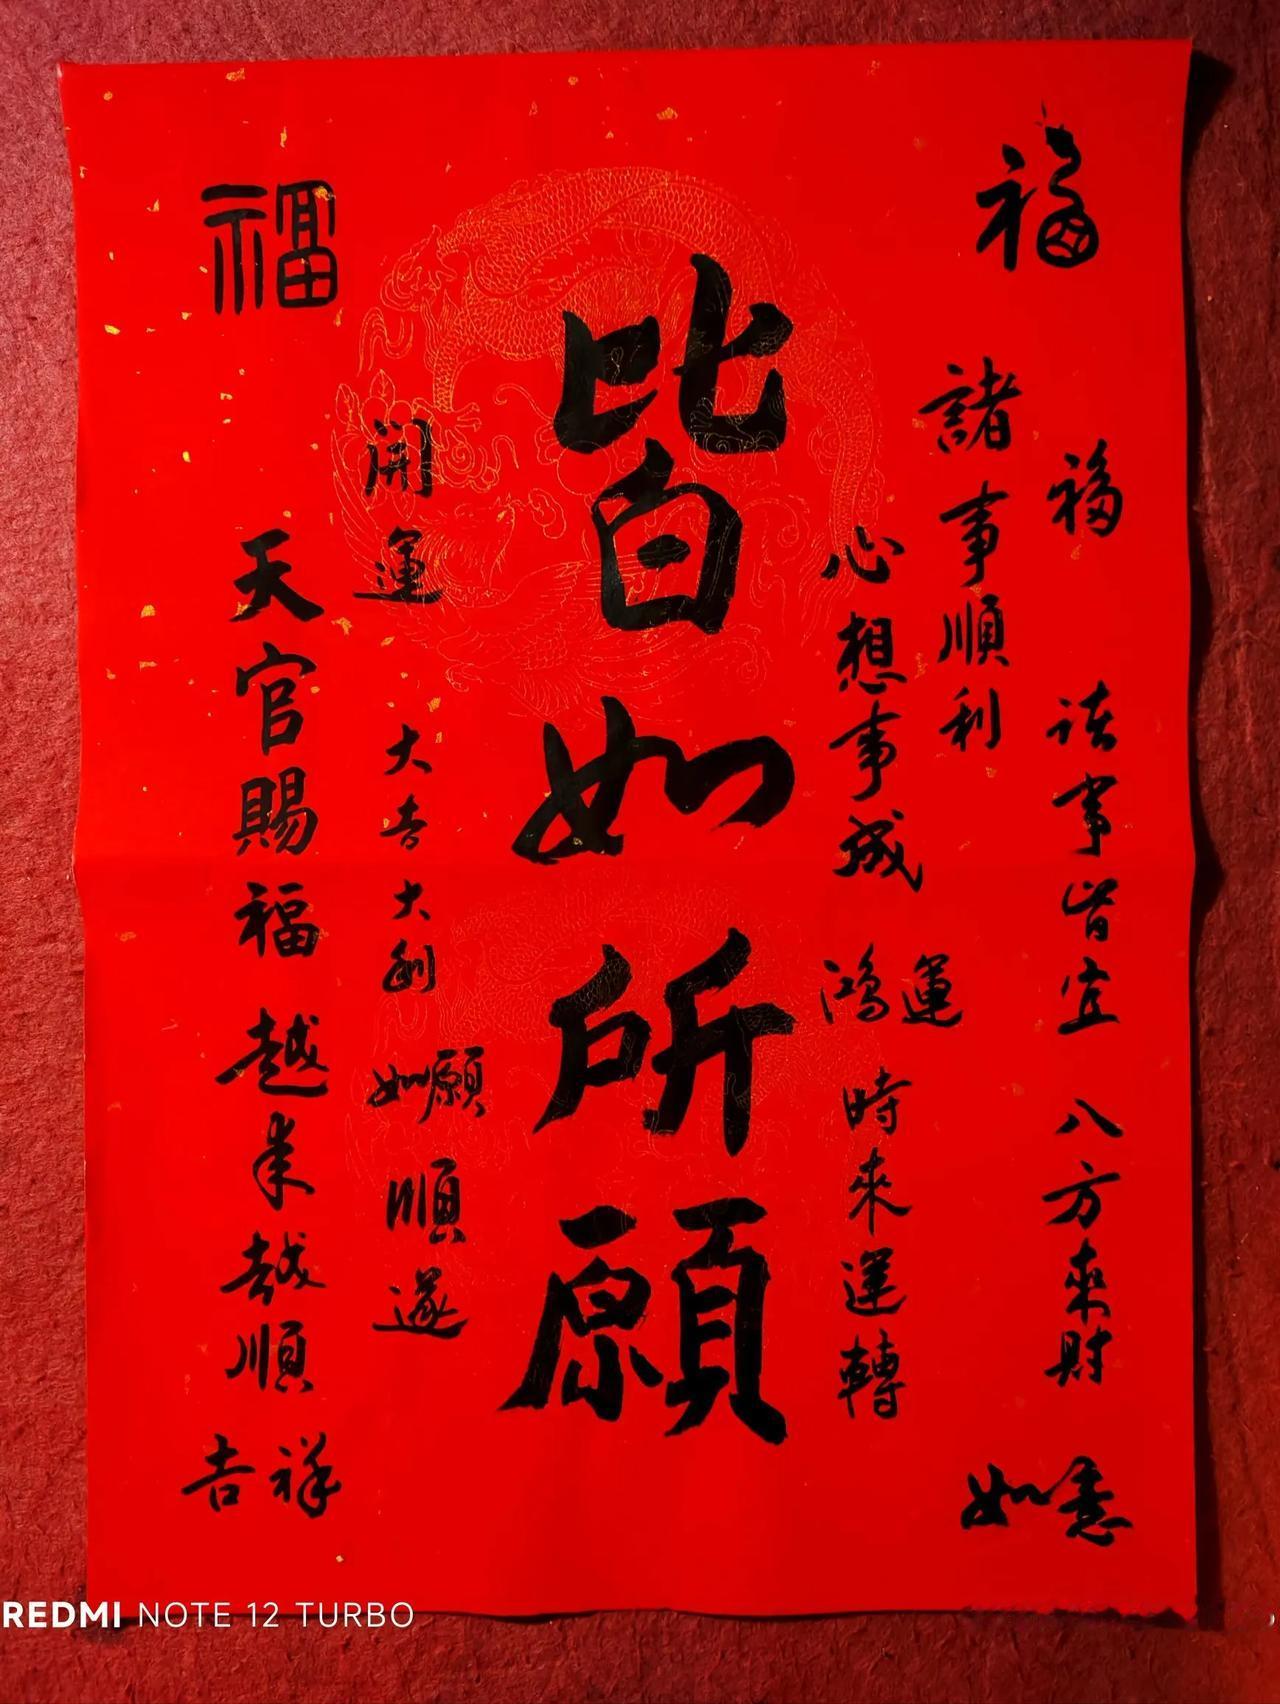 福
福
諸事皆宜
八方來財
如意
諸事順利
心想事成
鴻運
時來運轉
皆如所願
開運
大吉大利
如願
順遂
福
天官賜福
越來越順
吉祥
REDMI NOTE 12 TURBO